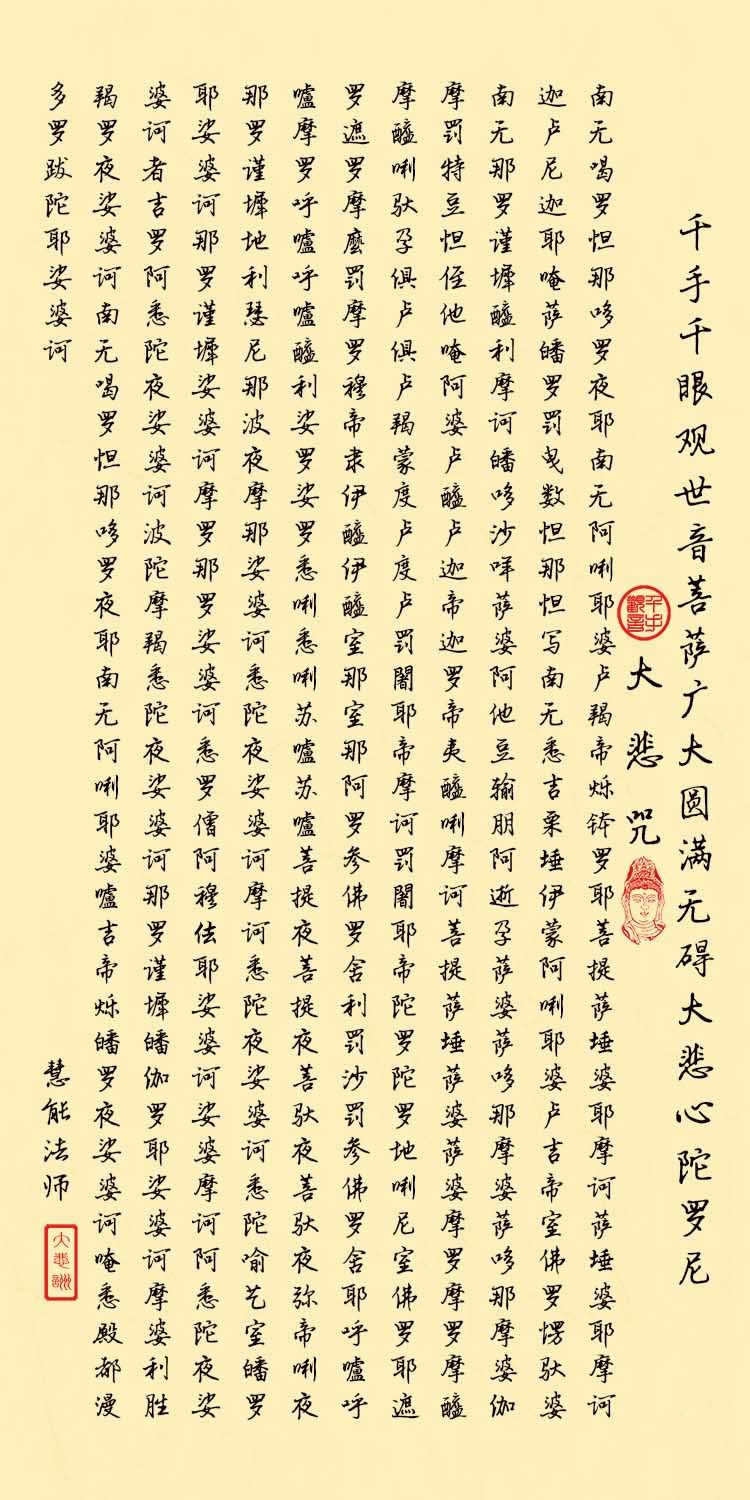 千手千眼观世音菩萨广大圆满无碍大悲心陀罗尼
千手觀音
大悲咒
南无喝罗怛那哆罗夜耶南无阿唎耶婆卢羯帝烁钵罗耶菩提萨埵婆耶摩诃萨埵婆耶摩诃
迦卢尼迦耶唵萨皤罗罚曳数怛那怛写南无悉吉栗埵伊蒙阿唎耶婆卢吉帝室佛罗愣驮婆
南无那罗谨墀醯利摩诃皤哆沙咩萨婆阿他豆输朋阿逝孕萨婆萨哆那摩婆萨哆那摩婆伽
摩罚特豆怛侄他唵阿婆卢醯卢迦帝迦罗帝夷醯唎摩诃菩提萨埵萨婆萨婆摩罗摩罗摩醯
摩醯唎驮孕俱卢俱卢羯蒙度卢度卢罚闍耶帝摩诃罚闍耶帝陀罗陀罗地唎尼室佛罗耶遮
罗遮罗摩麽罚摩罗穆帝隶伊醯伊醯室那室那阿罗参佛罗舍利罚沙罚参佛罗舍耶呼嚧呼
嚧摩罗呼嚧呼嚧醯利娑罗娑罗悉唎悉唎苏嚧苏嚧菩提夜菩提夜菩驮夜菩驮夜弥帝唎夜
那罗谨墀地利瑟尼那波夜摩那娑婆诃悉陀夜娑婆诃摩诃悉陀夜娑婆诃悉陀喻艺室皤罗
耶娑婆诃那罗谨墀娑婆诃摩罗那罗娑婆诃悉罗僧阿穆佉耶娑婆诃娑婆摩诃阿悉陀夜娑
婆诃者吉罗阿悉陀夜娑婆诃波陀摩羯悉陀夜娑婆诃那罗谨墀皤伽罗耶娑婆诃摩婆利胜
羯罗夜娑婆诃南无喝罗怛那哆罗夜耶南无阿唎耶婆嚧吉帝烁皤罗夜娑婆诃唵悉殿都漫
多罗跋陀耶娑婆诃
慧能法师
大悲咒